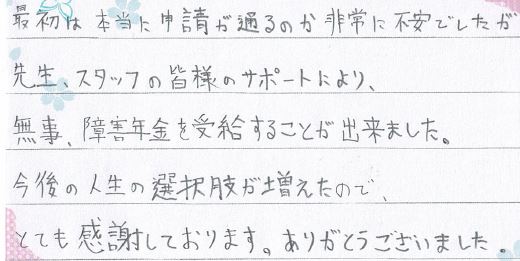 最初は本当に申請が通るのか非常に不安でしたが
先生、スタッフの皆様のサポートにより、
無事、障害年金を受給することが出来ました。
今後の人生の選択肢が増えたので、
とても感謝しております。ありがとうございました。